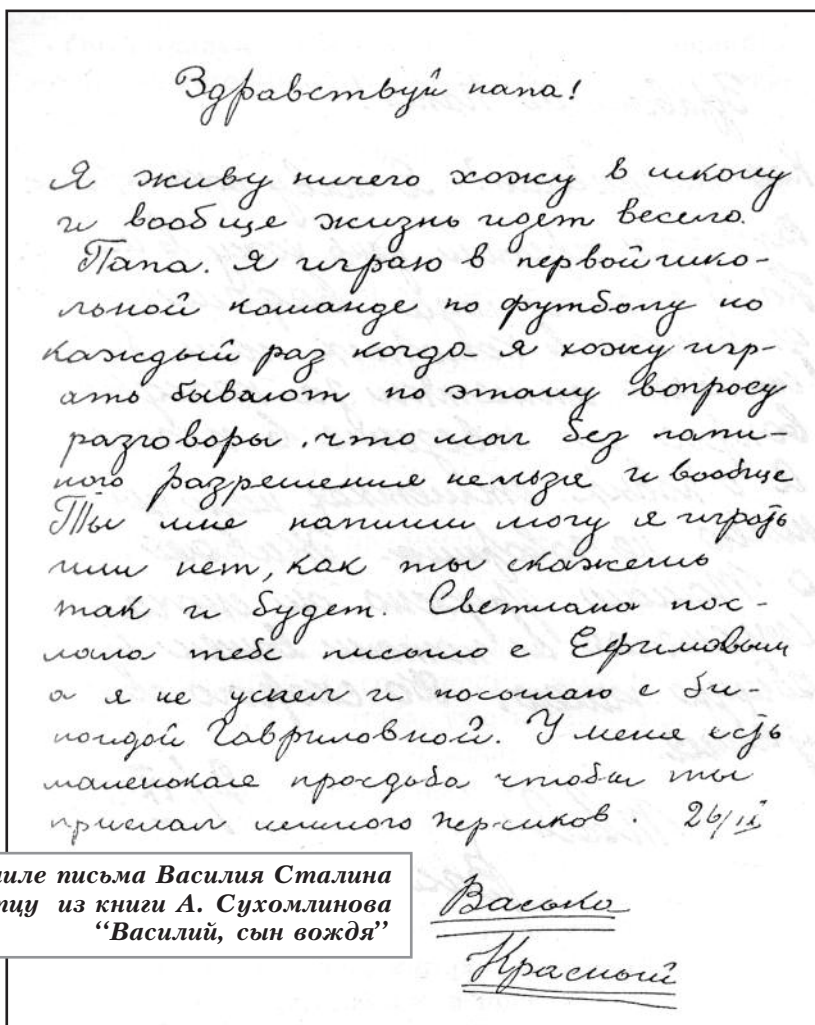 Здравствуй папа!
Я живу ничего хожу в школу
и вообще жизнь идет весело.
Папа. Я играю в первой шко-
льной команде по футболу но
каждый раз когда я хожу игр-
ать бывают по этому вопросу
разговоры, что мол без папи-
ного разрешения нельзя и вообще
Ты мне напиши могу я играть
или нет, как ты скажешь
так и будет. Светлана пос-
лала тебе письмо с Ефимовым
а я не успел и посылаю с
Гавриловной. У меня есть
маленькая просдьба чтобы ты
прислал немного персиков. 26/IX
Васька
Красный
иле письма Василия Сталина
тцу из книги А. Сухомлинова
“Василий, сын вождя”